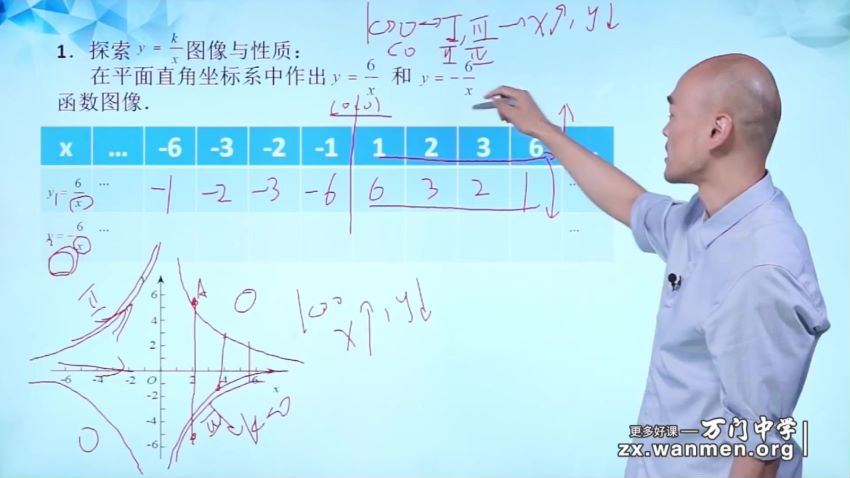 k>0→I,III→x↑,y↓
<0 II,IV
1. 探索 y = k/x 图像与性质：
在平面直角坐标系中作出 y = 6/x 和 y = -6/x
函数图像.
x … -6 -3 -2 -1 1 2 3 6 …
y₁ = 6/x … -1 -2 -3 -6 6 3 2 1 …
…
6
4
2
-6 -4 -2 O 2 4 6 x
-2
-4
-6
II
A
k>0
x↑,y↓
更多好课—万门中学
zx.wanmen.org